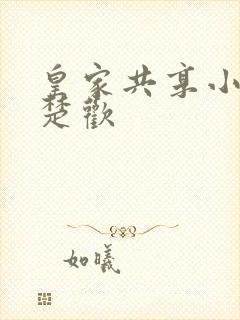 皇家共享小
楚歡
如曦